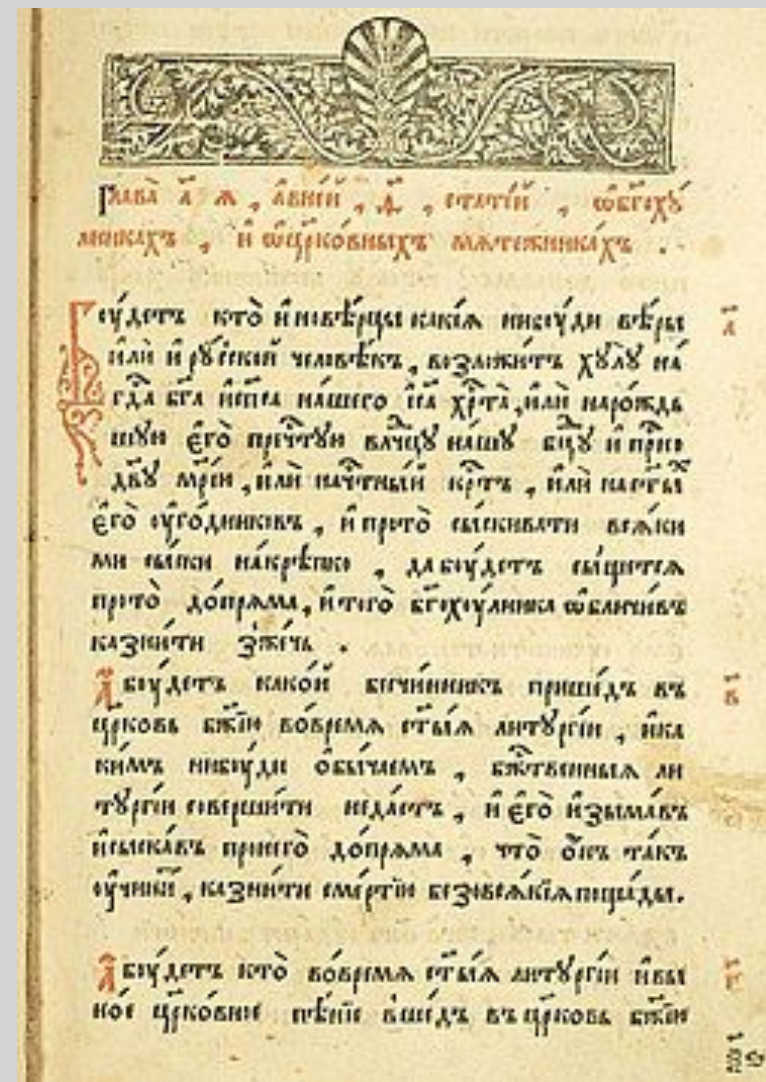 Глава̀ а҃ я , а҆вне́й , д҃ , статі́й , ѡ҆бг҃оху́
лникахъ , и҆ ѡ҆цр҃ко́вныхъ мѧте́жникахъ .
Бꙋ́детъ кто̀ и҆нові́рцы какі́ѧ нибꙋди вѣ́ры
и҆лѝ и҆ рꙋ́ской человѣ́къ , возложи́тъ хꙋлꙋ̀ на́
гдⷭ҇а бг҃а и҆сп҃са на́шего і҆с҃а хрⷭ҇та̀ , и҆лѝ наро́ждь
шꙋю є҆го̀ преⷱ҇тꙋю влⷣчцꙋ на́шꙋ бцⷣꙋ и҆ прⷭ҇но
дв҃ꙋ мр҃і́ю , и҆лѝ начⷭ҇тны́й крⷭ҇тъ , и҆лѝ наст҃ы́хъ
є҆го̀ ᲂу҆го́дниковъ , и҆ прото̀ сы́скивати всѧ́ки
ми сы́ски на́крѣпко , да бꙋ́детъ сы́щетсѧ
прото̀ до́прѧма , и҆ того̀ бг҃охꙋ́лника ѡ҆бличи́въ
казни́ти зже́чь .
А҆ бꙋ́детъ како́й безчи́нникъ прише́дъ въ
цр҃ковь бж҃ію во́времѧ ст҃ы́ѧ литꙋргі́и , и҆ка
ки́мъ нибꙋ́ди ѻ҆бы́чаемъ , бжⷭ҇твенныѧ ли
тꙋргі́и соверши́ти неда́стъ , и҆ є҆го̀ и҆зыма́въ
и҆сыска́въ пронего̀ до́прѧма , что̀ ѻ҆́нъ та́къ
ᲂу҆чини́тъ , казни́ти сме́ртію безовсѧ́кіѧ поща́ды .
А҆ бꙋ́детъ кто̀ во́времѧ ст҃ы́ѧ литꙋргі́и и҆вы
но́е цр҃ко́вное пѣ́ніе вше́дъ въ цр҃ковь бж҃ію
а҃
в҃